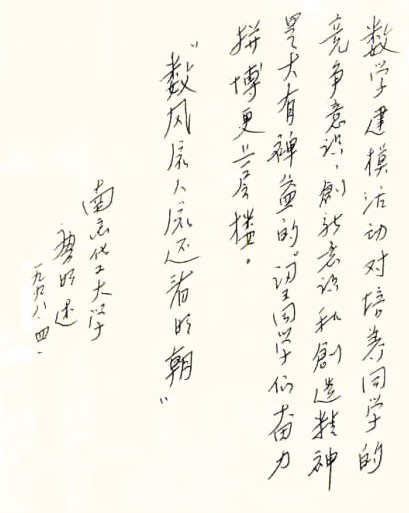 数学建模活动对培养同学的
竞争意识、創新意识和創造精神
是大有裨益的。望同学们奋力
拼博更上一层楼。
“数风流人流还看明朝”
南京化工大学
明述
一九九八.四.